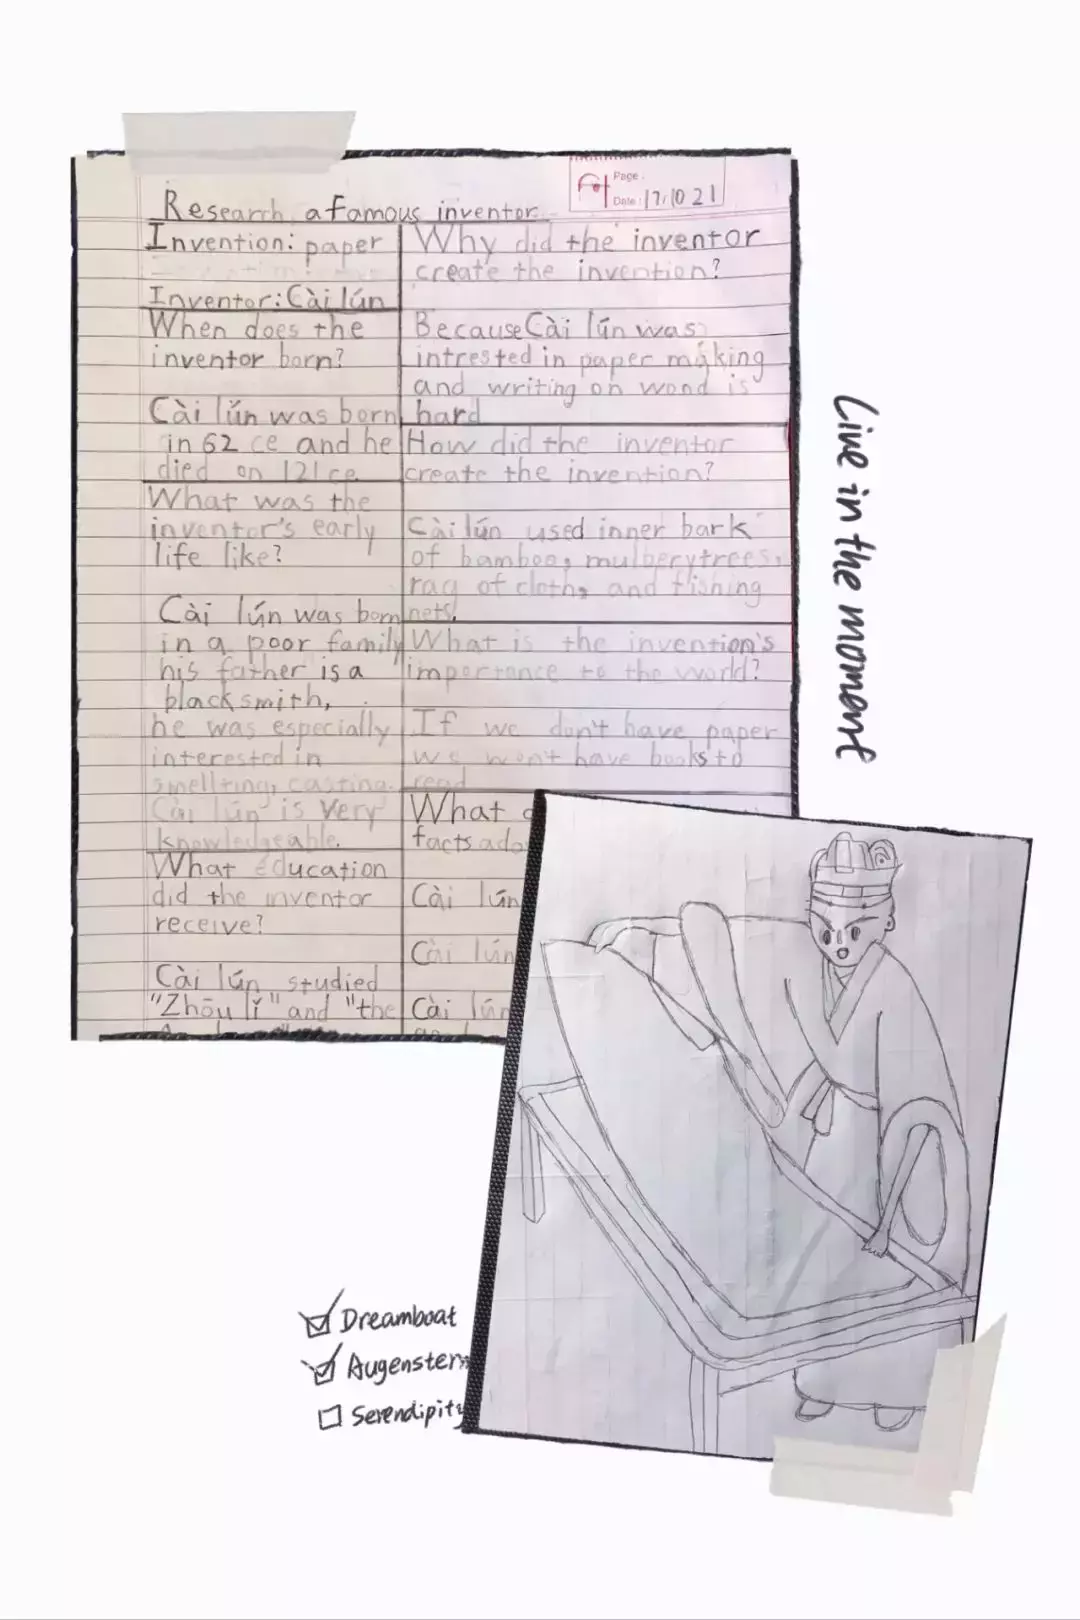 Page:
Date: 17.10 21
Research a famous inventor
Invention: paper
Inventor: Cài lún
When does the
inventor born?
Cài lún was born
in 62 ce and he
died on 121 ce
What was the
inventor's early
life like?
Cài lún was born
in a poor family
his father is a
blacksmith,
he was especially
interested in
smellting, casting.
Cài lún is very
knowledgeable.
What education
did the inventor
receive?
Cài lún studied
"Zhōu lǐ" and "the
Why did the inventor
create the invention?
Because Cài lún was
intrested in paper making
and writing on wood is
hard
How did the inventor
create the invention?
Cài lún used inner bark
of bamboo, mulberytrees,
rag of cloth, and fishing
nets.
What is the invention's
importance to the world?
If we don't have paper
we won't have books to
read
What
facts
Cài lún
Cài lún
Cài lún
Live in the moment
Dreamboat
Augenstern
Serendipity